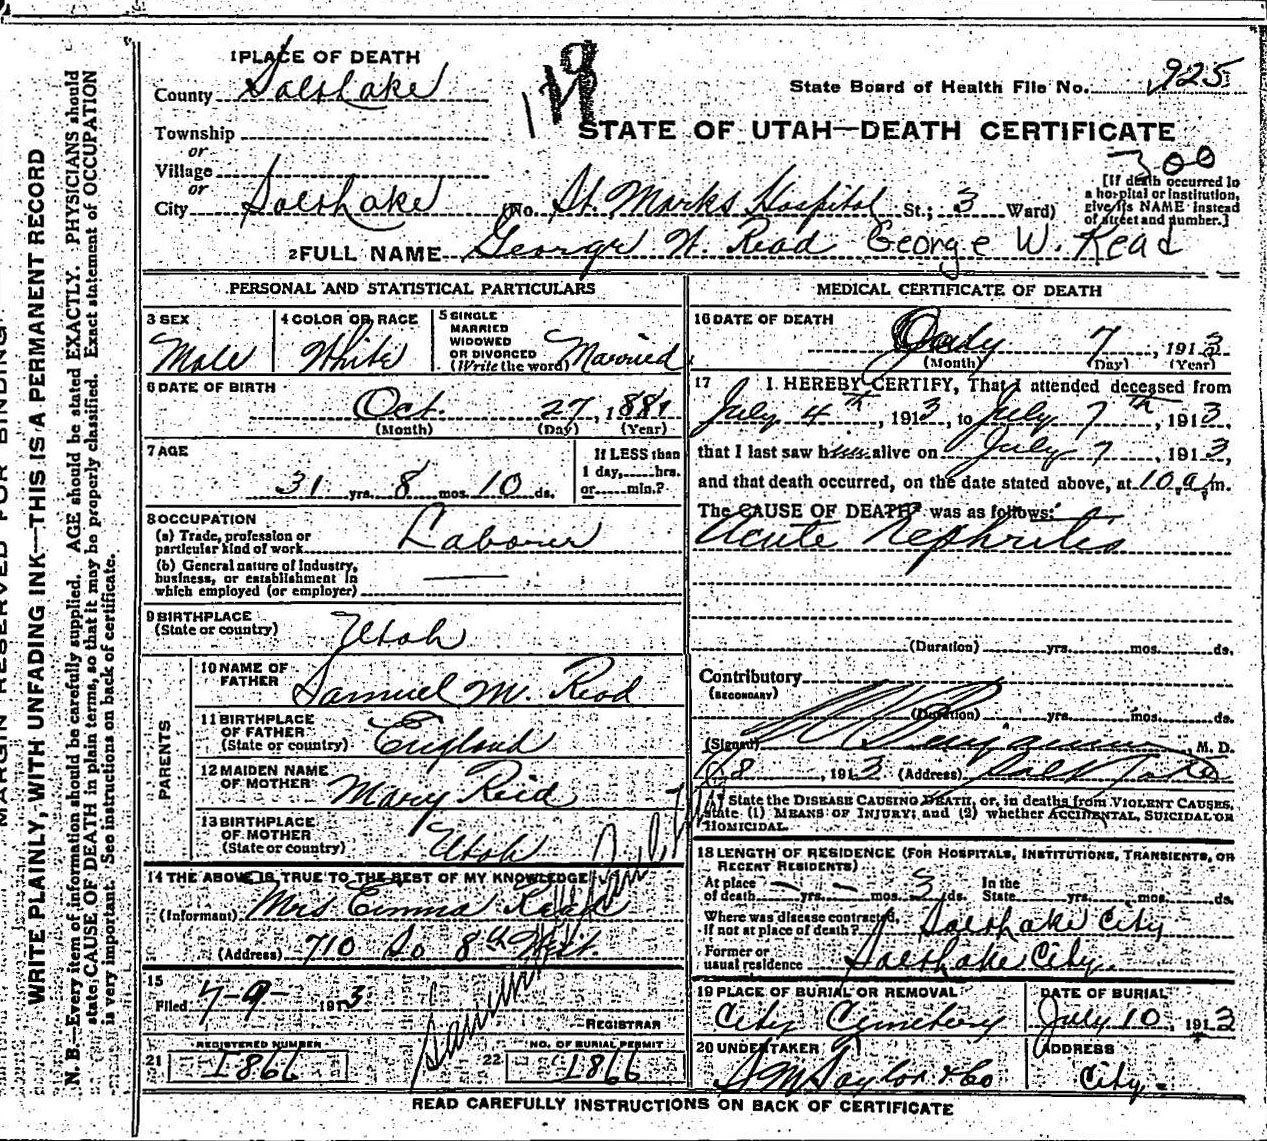 1 PLACE OF DEATH
County Salt Lake
State Board of Health File No. 925
Township
or
Village
or
STATE OF UTAH—DEATH CERTIFICATE
300
City Salt Lake (No. St. Marks Hospital St.; 3 Ward)
[If death occurred in a hospital or institution, give its NAME instead of street and number.]
2 FULL NAME George W. Read George W. Read
PERSONAL AND STATISTICAL PARTICULARS
3 SEX
Male
4 COLOR OR RACE
White
5 SINGLE
MARRIED
WIDOWED
OR DIVORCED
(Write the word) Married
6 DATE OF BIRTH
Oct. 27, 1881
(Month) (Day) (Year)
7 AGE
31 yrs. 8 mos. 10 ds.
If LESS than
1 day, hrs.
or min.?
8 OCCUPATION
(a) Trade, profession or
particular kind of work Laborer
(b) General nature of Industry,
business, or establishment in
which employed (or employer)
9 BIRTHPLACE
(State or country) Utah
PARENTS
10 NAME OF
FATHER Samuel M. Read
11 BIRTHPLACE
OF FATHER
(State or country) England
12 MAIDEN NAME
OF MOTHER Mary Reid
13 BIRTHPLACE
OF MOTHER
(State or country) Utah
14 THE ABOVE IS TRUE TO THE BEST OF MY KNOWLEDGE
(Informant) Mrs Emma
(Address) 710 So 8th West.
15
Filed 7-9- 1913
REGISTRAR
21 REGISTERED NUMBER
1866
22 NO. OF BURIAL PERMIT
1866
MEDICAL CERTIFICATE OF DEATH
16 DATE OF DEATH
July 7, 1913
(Month) (Day) (Year)
17 I HEREBY CERTIFY, That I attended deceased from
July 4th, 1913, to July 7th, 1913,
that I last saw him alive on July 7, 1913,
and that death occurred, on the date stated above, at 10 a.m.
The CAUSE OF DEATH was as follows:
Acute Nephritis
(Duration) yrs. mos. ds.
Contributory
(SECONDARY)
(Duration) yrs. mos. ds.
(Signed) M. D.
8, 1913 (Address) Salt Lake
State the DISEASE CAUSING DEATH, or, in deaths from VIOLENT CAUSES,
state (1) MEANS OF INJURY; and (2) whether ACCIDENTAL, SUICIDAL OR
HOMICIDAL.
18 LENGTH OF RESIDENCE (FOR HOSPITALS, INSTITUTIONS, TRANSIENTS, OR
RECENT RESIDENTS)
At place
of death yrs. mos. 3 ds.
In the
State yrs. mos. ds.
Where was disease contracted,
If not at place of death? Salt Lake City
Former or
usual residence Salt Lake City.
19 PLACE OF BURIAL OR REMOVAL
City Cemetery
DATE OF BURIAL
July 10, 1913
20 UNDERTAKER
S M Taylor & Co
ADDRESS
City.
READ CAREFULLY INSTRUCTIONS ON BACK OF CERTIFICATE
MARGIN RESERVED FOR BINDING
WRITE PLAINLY, WITH UNFADING INK—THIS IS A PERMANENT RECORD
N. B.—Every item of information should be carefully supplied. AGE should be stated EXACTLY. PHYSICIANS should
state CAUSE OF DEATH in plain terms, so that it may be properly classified. Exact statement of OCCUPATION
is very important. See instructions on back of certificate.